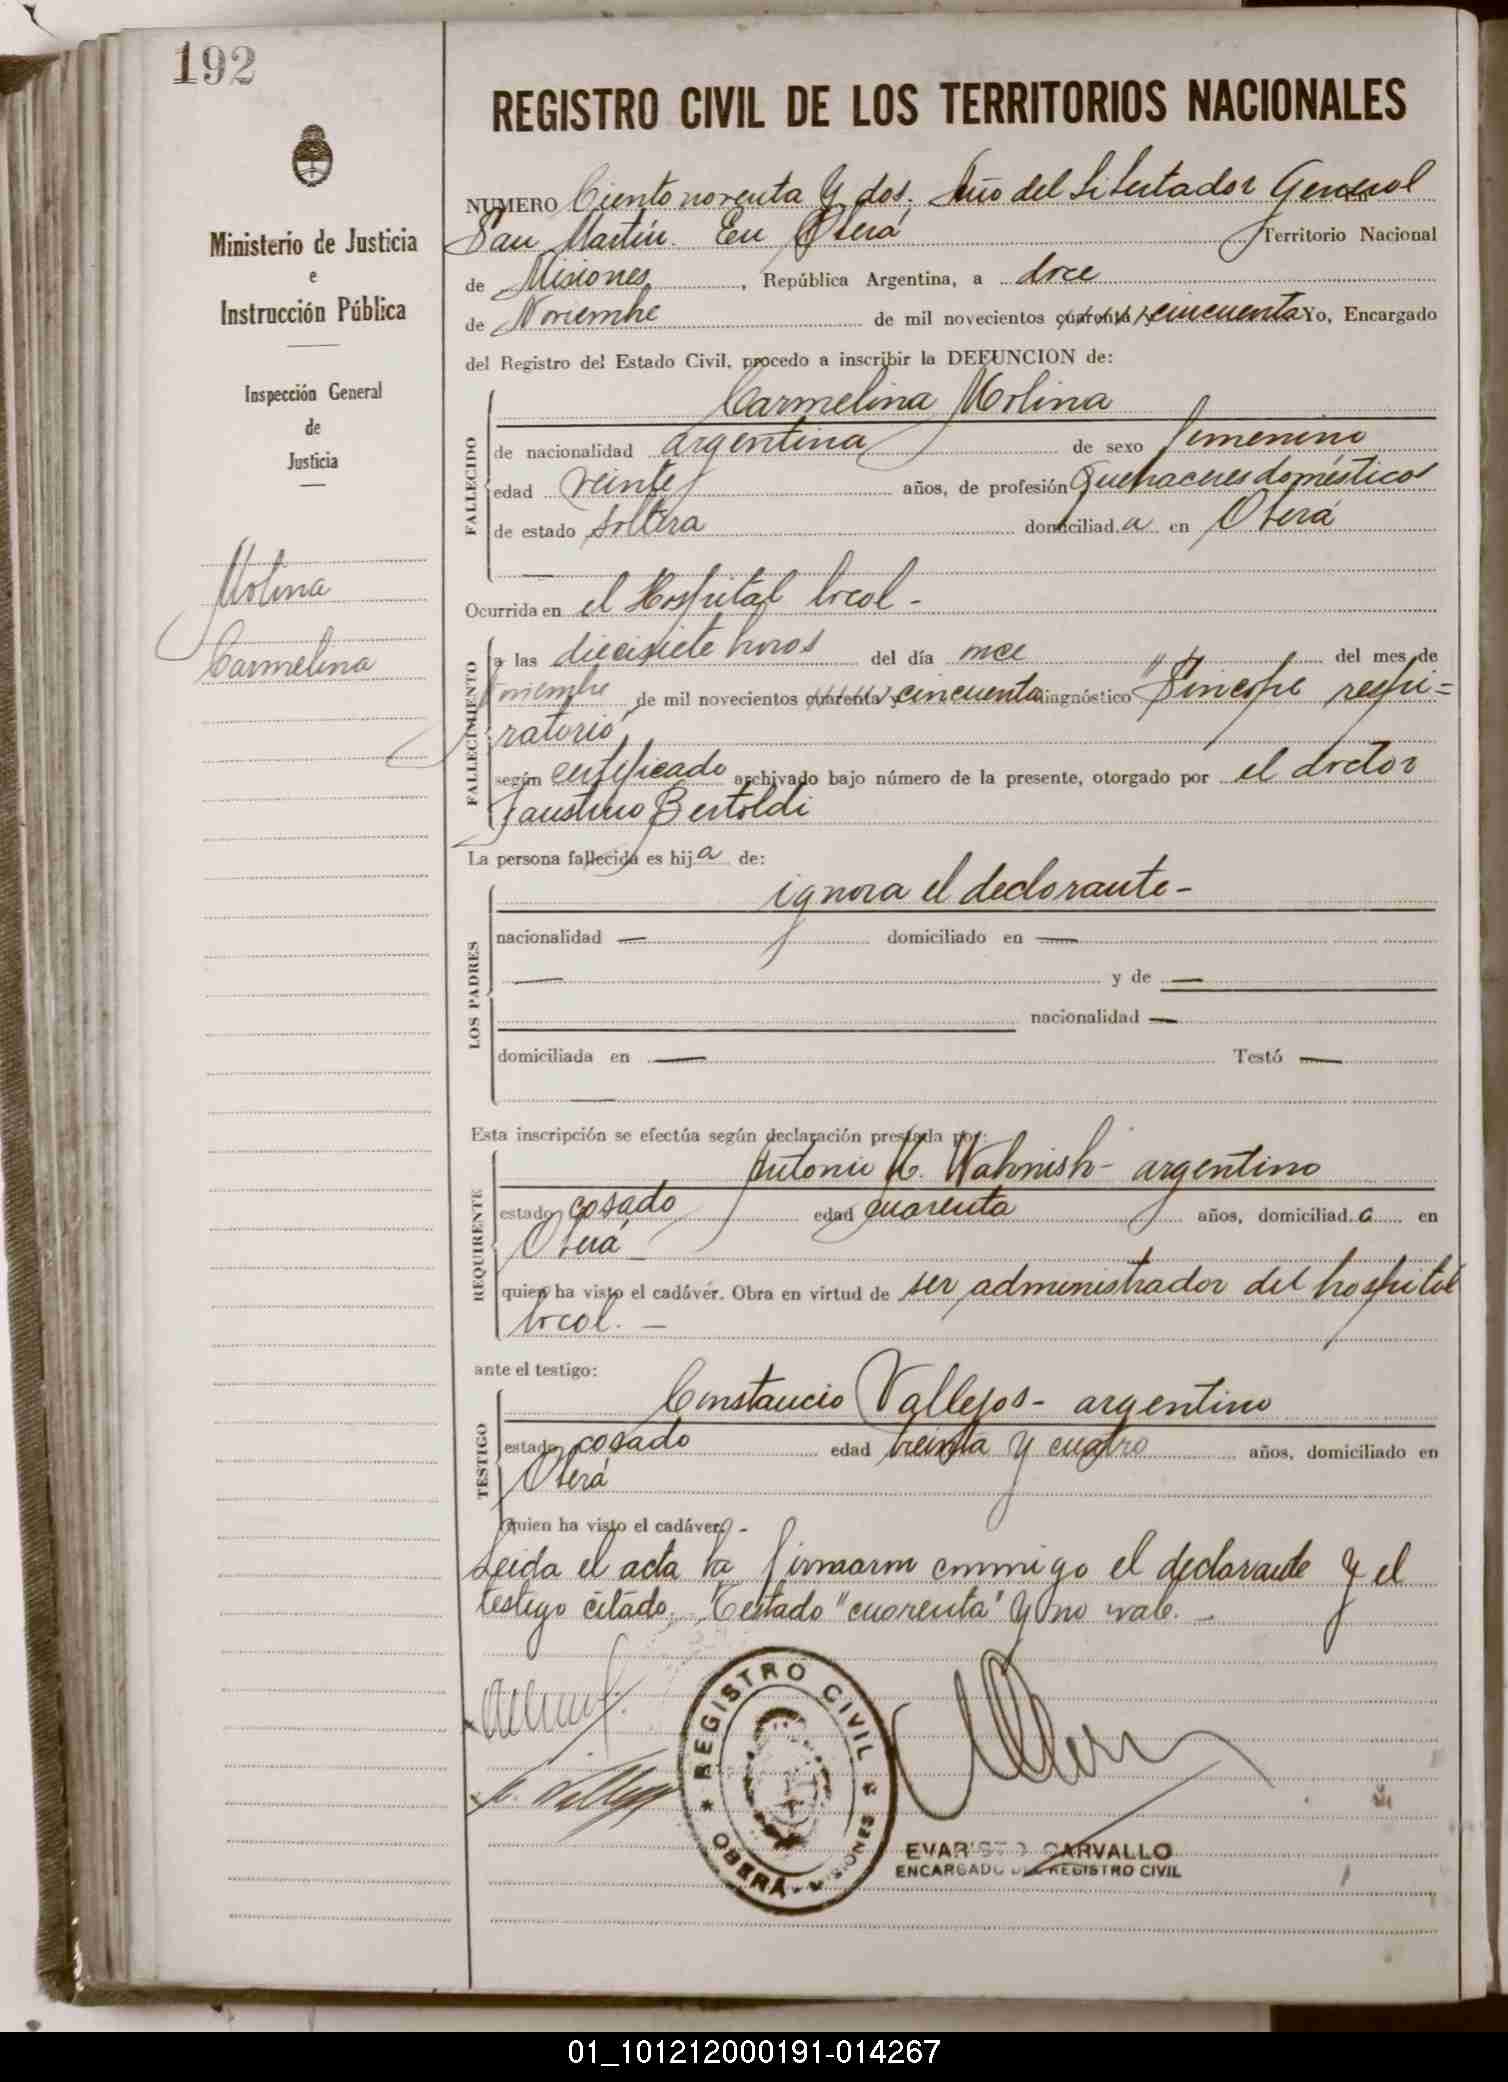 192
REGISTRO CIVIL DE LOS TERRITORIOS NACIONALES
Ministerio de Justicia
e
Instrucción Pública
Inspección General
de
Justicia
Molina
Carmelina
NUMERO Ciento noventa y dos. Año del Libertador General En
San Martín. En Oberá Territorio Nacional
de Misiones, República Argentina, a doce
de Noviembre de mil novecientos cuarenta y cincuenta Yo, Encargado
del Registro del Estado Civil, procedo a inscribir la DEFUNCION de:
FALLECIDO
Carmelina Molina
de nacionalidad argentina de sexo femenino
edad veinte años, de profesión quehaceres domésticos
de estado soltera domiciliad a en Oberá
Ocurrida en el Hospital local -
FALLECIMIENTO
a las diecisiete horas del día once del mes de
Noviembre de mil novecientos cuarenta y cincuenta diagnóstico "Síncope respi=
ratorio"
según certificado archivado bajo número de la presente, otorgado por el doctor
Faustino Bertoldi
La persona fallecida es hij a de:
LOS PADRES
ignora el declarante -
nacionalidad — domiciliado en —
— y de —
nacionalidad —
domiciliada en — Testó —
—
Esta inscripción se efectúa según declaración prestada por:
REQUIRENTE
Antonio M. Wahnish - argentino
estado casado edad cuarenta años, domiciliad o en
Oberá
quien ha visto el cadáver. Obra en virtud de ser administrador del hospital
local. —
ante el testigo:
TESTIGO
Constancio Vallejos - argentino
estado casado edad treinta y cuatro años, domiciliado en
Oberá
quien ha visto el cadáver. -
Leida el acta la firmaron conmigo el declarante y el
testigo citado. Testado "cuarenta" y no vale. —
REGISTRO CIVIL
OBERÁ - MISIONES
EVARISTO CARVALLO
ENCARGADO DEL REGISTRO CIVIL
01_101212000191-014267